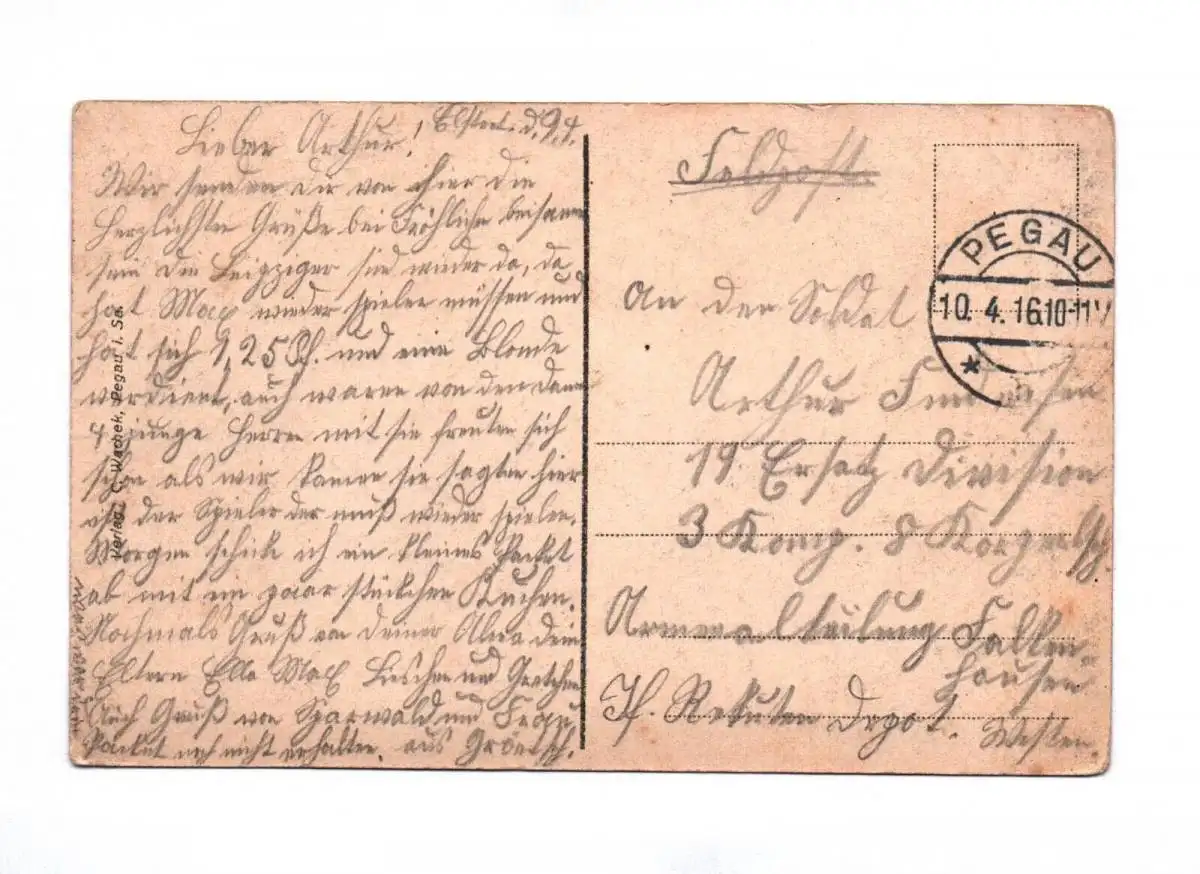 Elstert. d. 9.4.
Lieber Arthur!
Wir senden dir von hier die
herzlichsten Grüße bei Fröhliche beisamm
sein die Leipziger sind wieder da, da
hat Max wieder spielen müssen und
hat sich 1,25 Pf. und eine Blonde
verdient, auch waren von den Dam
4 junge Herren mit sie freuten sich
schon als wir kamen sie sagten hier
ist der Spieler der muß wieder spielen.
Morgen schick ich ein kleines Packet
ab mit ein paar stückchen Kuchen.
Nochmals Gruß von deiner dein
Eltern Ella Max Lieschen und Gretchen
Auch Gruß von Sparwald und Frau
Packet noch nicht erhalten. aus
Verlag: C. Wachek, Pegau i. Sa.
Feldpost.
PEGAU
10. 4. 16 10-11 V
An den Soldat
Arthur
19. Ersatz Division
3 Komp. 8 Korperlsch.
Armeeabteilung Falken-
hausen
If. Rekuten Depot. Westen.